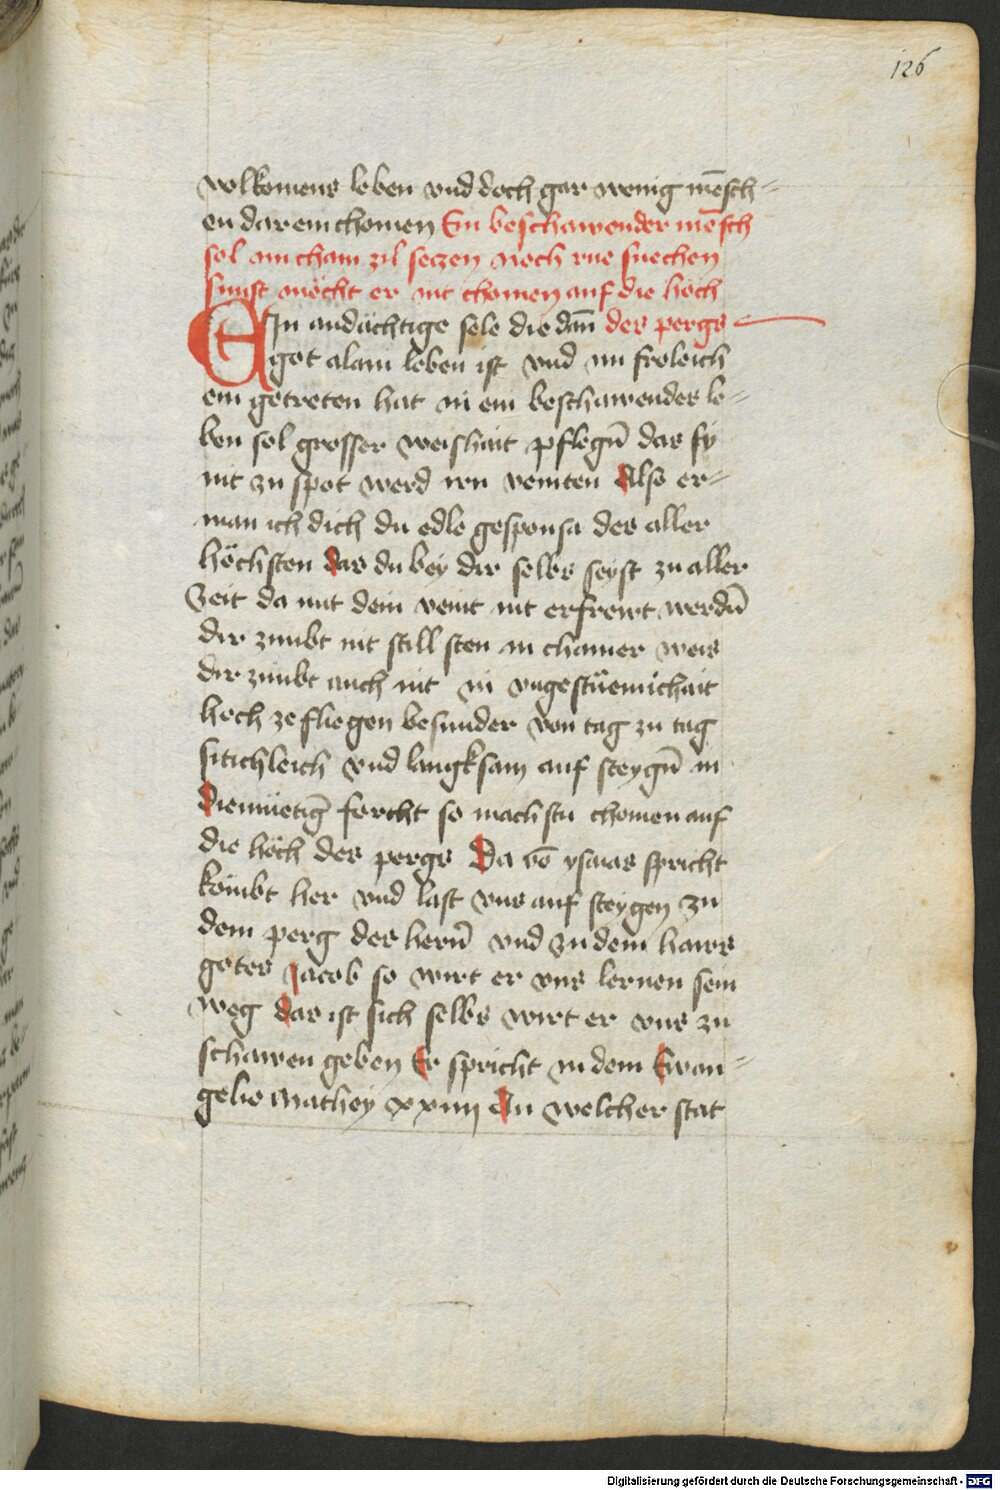 126
volkomens leben vnd doch gar wenig mēsch-
en dar ein chomen Ein beschawender mēsch
sol im chain zil seczen noch rue suechen
sunst möcht er nit chomen auf die höch
EIn andächtige sele die dañ des pergs
got alain leben ist vnd nu froleich
ein getreten hat in ein beschawendes le-
ben sol grosser weishait pflegñ das sy
nit zu spot werd irn veinten Also er-
man ich dich du edle gesponsa des aller
höchsten das du bey dir selbs seyst zu aller
Zeit da mit dein veint nit erfrewt werdñ
dir zimbt nit still sten in chainer weis
dir zimbt auch nit in vngestüemichait
hoch ze fliegen besunder von tag zu tag
sitichleich vnd langksam auf steygñ in
diemüetig̃ forcht so machstu chomen auf
die höch des pergs Da vō ysaias spricht
kömbt her vnd last vns auf steygen zu
dem perg des herñ vnd zu dem haws
gotes Jacob so wirt er vns lernen sein
weg das ist sich selbs wirt er vns zu
schawen geben Er spricht in dem Ewan-
gelio Mathey xxiiij In welcher stat
Digitalisierung gefördert durch die Deutsche Forschungsgemeinschaft - DFG